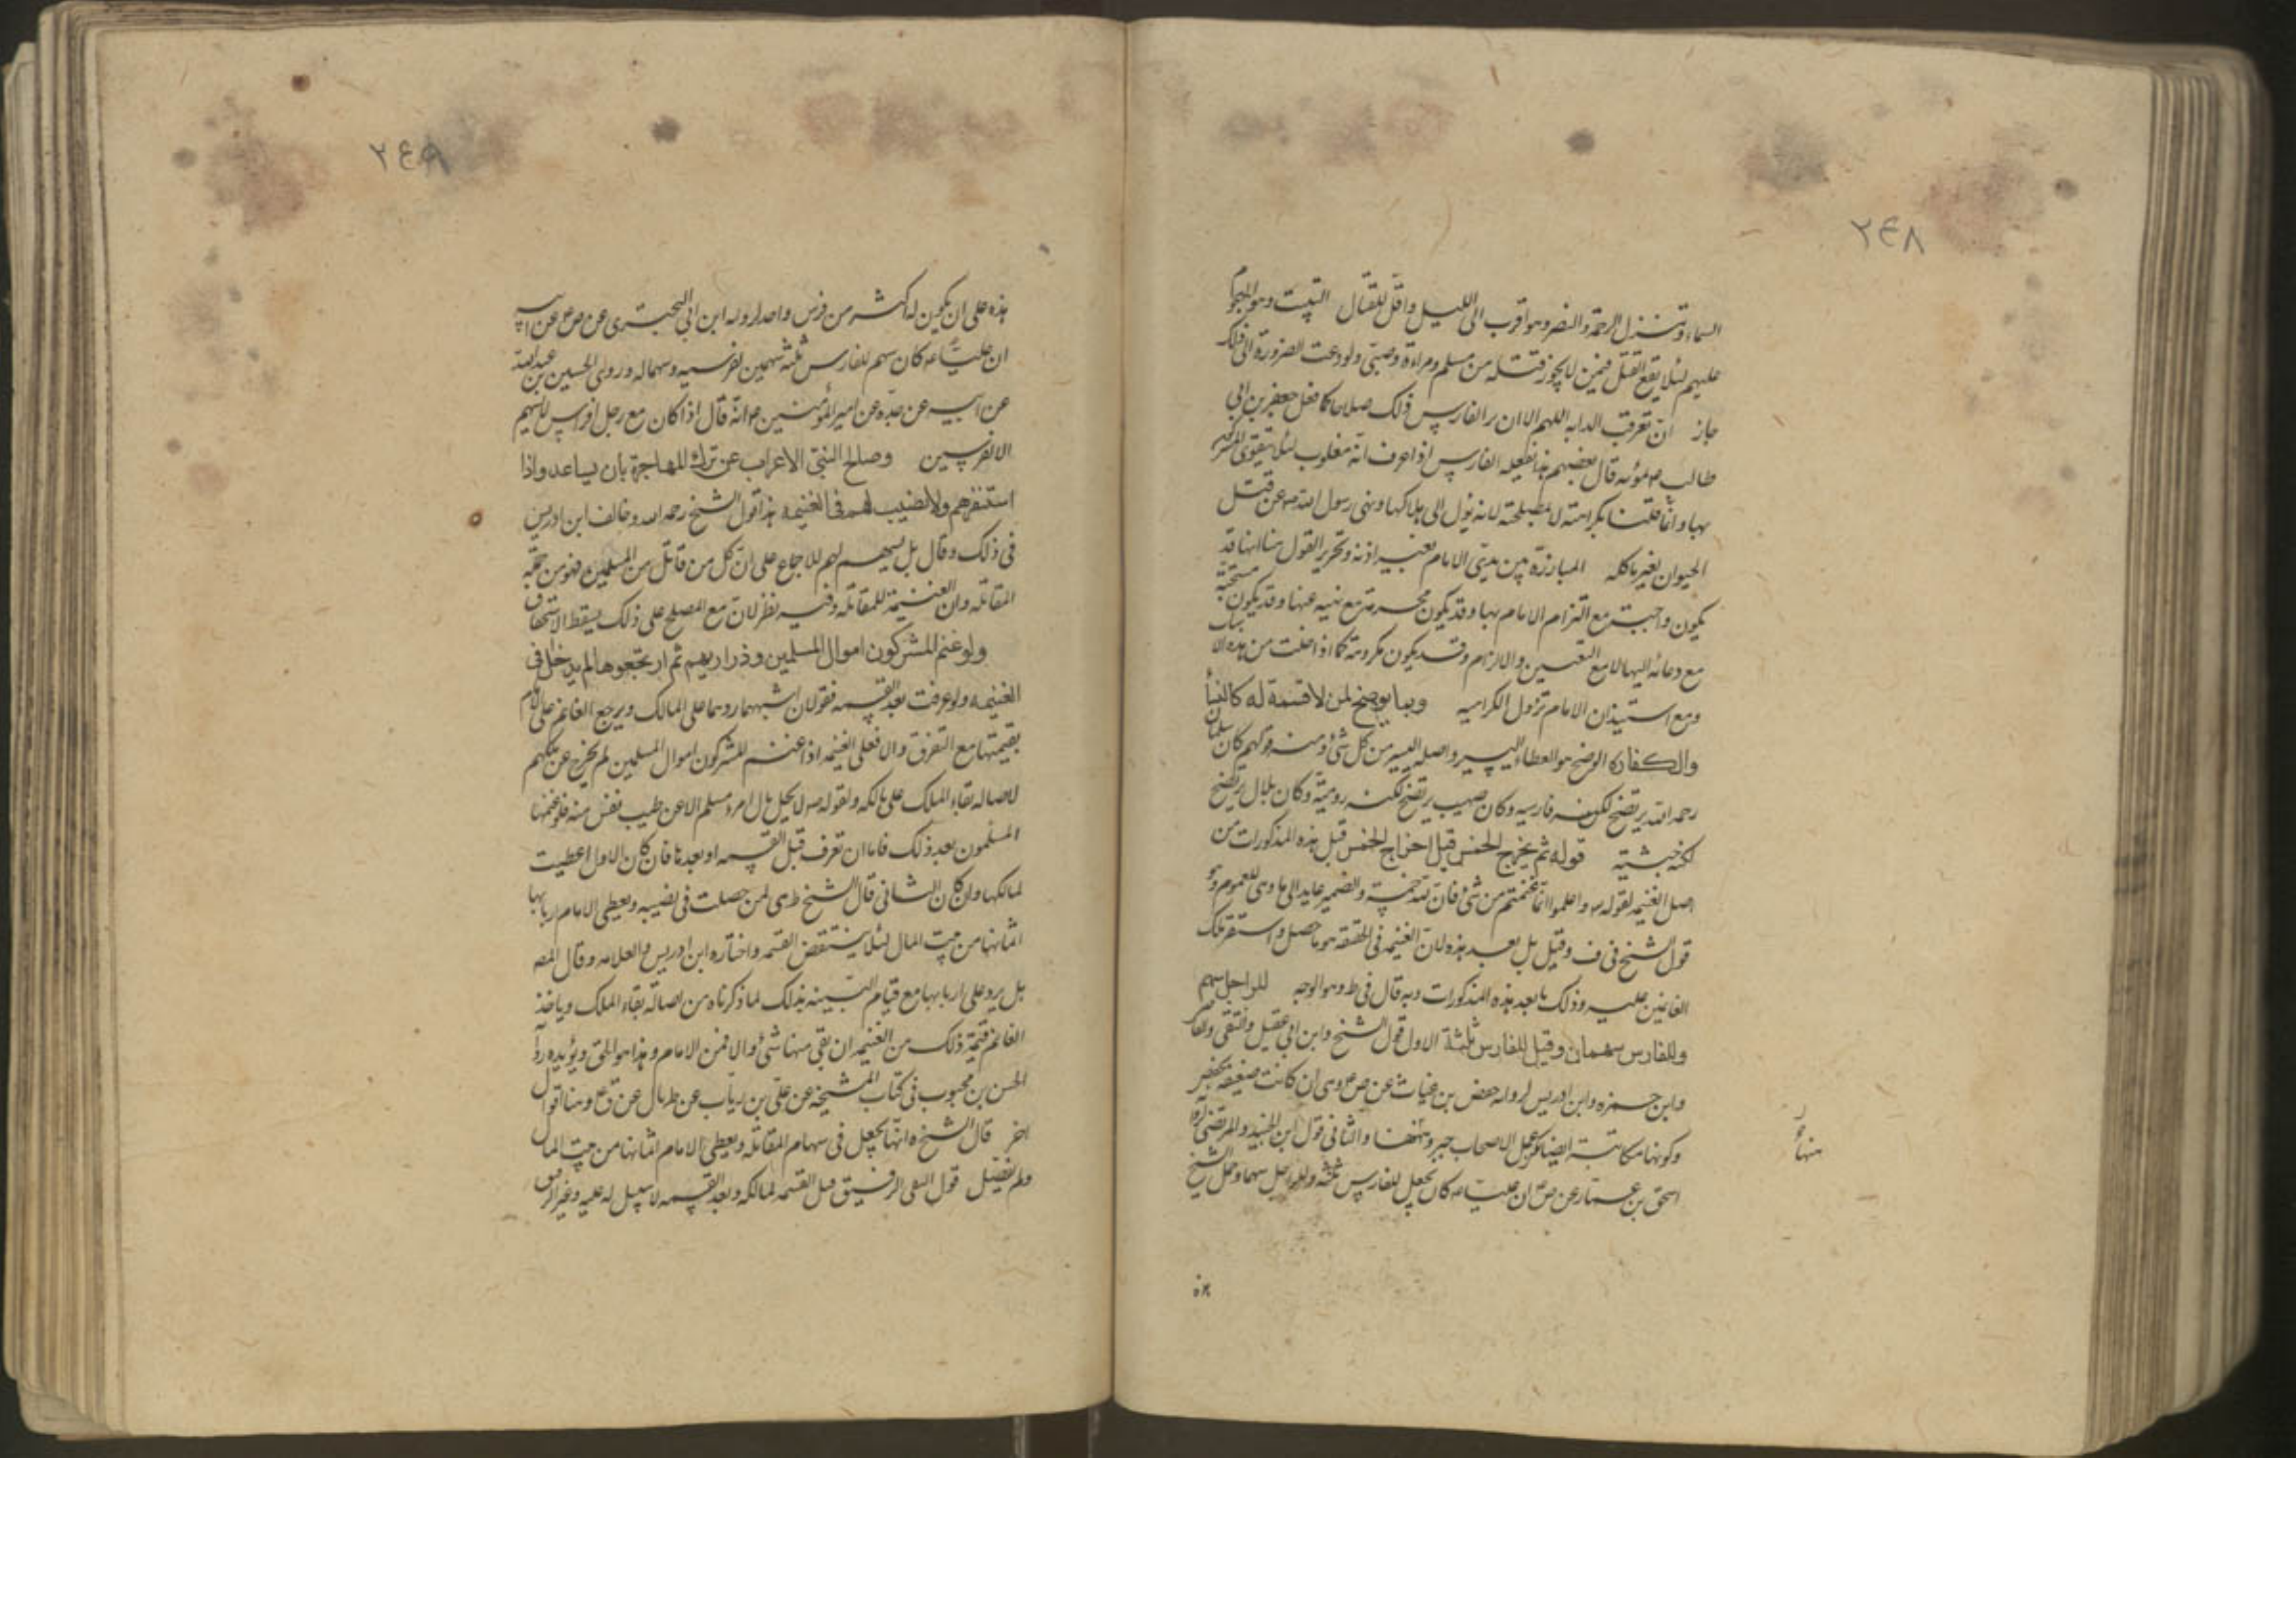 ٢٤٨
السماء وتنزل الرحمة والنصر وهو اقرب الى الليل واقل للقتال التبيت وهو الهجوم
عليهم لئلا يقع القتل فيمن لا يجوز قتله من مسلم ومراءة وصبي ولو دعت الضرورة الى ذلك
جاز ان تعرقب الدابه اللهم الا ان ير الفارس ذلك صلاحا كما فعل جعفر بن ابي
طالب بموته قال بعضهم هذا يفعله الفارس اذا عرف انه مغلوب لئلا يتقوى المشرك
بها وانما قلنا بكراهته لا لمصلحته لانه يؤل الى هلاكها ونهى رسول الله ص عن قتل
الحيوان لغير ماكله المبارزة بين يدي الامام بغير اذنه وتحرير القول هنا انها قد
يكون واجبة مع الزام الامام بها وقد يكون محرمة مع نهيه عنها وقد يكون مستحبة
مع دعائه اليها لا مع التعيين والالزام وقد يكون مكروهة كما اذا خلت من هذه الاسباب
ومع استيذان الامام تزول الكراهيه وبما يوضخ لمن لا قسمة له كالنساء
والكفار الرضخ هو العطاء اليسير واصله اليسير من كل شئ ومنه قولهم كان سلمان
رحمه الله يرتضخ لكنه فارسيه وكان صهيب يرتضخ لكنه روميه وكان بلال يرتضخ
لكنه حبشيه قوله ثم يخرج الخمس قيل اخراج الخمس قبل هذه المذكورات من
اصل الغنيمه لقوله تع واعلموا انما غنمتم من شئ فان لله خمسه والضمير عايد الى ما وهي للعموم وهو
قول الشيخ في ف وقيل بل بعد هذه لان الغنيمه في الحقيقه هو ما حصل واستقر ملك
الغانمين عليه وذلك ما بعد هذه المذكورات وبه قال في ط وهو الوجه للراجل سهم
وللفارس سهمان وقيل للفارس ثلثة الاول قول الشيخ وابن ابي عقيل والتقي
وابن حمزه وابن ادريس لرواية حفص بن غياث عن ص ع وهي ان كانت ضعيفه بحفص
وكونها مكاتبة ايضا لكن عمل الاصحاب جبر وهنها والثاني قول ابن الجنيد والمرتضى
اسحق بن عمار عن ص ع ان عليا ع كان يجعل للفارس ثلثه وللراجل سهما وحمل الشيخ
منها
هذه
٢٤٩
هذه على ان يكون له اكثر من فرس واحد لرواية ابن ابي البختري عن ص ع عن ابيه
ان عليا ع كان يسهم للفارس ثلثة سهمين لفرسيه وسهما له وروى الحسين بن عبد الله
عن ابيه عن جده عن امير المؤمنين ع انه قال اذا كان مع رجل افراس لم يسهم
الا لفرسين وصالح النبي الاعراب عن ترك المهاجرة بان يساعدوا اذا
استنفرهم ولا نصيب لهم في الغنيمه هذا قول الشيخ رحمه الله وخالف ابن ادريس
في ذلك وقال بل يسهم لهم للاجماع على ان كل من قاتل من المسلمين فهو من جمله
المقاتله وان الغنيمة للمقاتله وفيه نظر لان مع الصلح على ذلك يسقط الاستحقاق
ولو غنم المشركون اموال المسلمين وذراريهم ثم ارتجعوها لم يدخل في
الغنيمه ولو عرفت بعد القسمه فقولان اشبههما ردهما على المالك ويرجع الغانم على الامام
بقيمتها مع التفرق والا فعلى الغنيمه اذا غنم المشركون اموال المسلمين لم يخرج عن ملكهم
لاصاله بقاء الملك على مالكه ولقوله ص لا يحل مال امرء مسلم الا عن طيب نفس منه فلو غنمها
المسلمون بعد ذلك فاما ان تعرف قبل القسمه او بعدها فان كان الاول اعطيت
لمالكها وان كان الثاني قال الشيخ ط هي لمن حصلت في نصيبه ويعطي الامام اربابها
اثمانها من بيت المال لئلا ينتقض القسمه واختاره ابن ادريس والعلامه وقال المصه
بل يرد على اربابها مع قيام البينه بذلك لما ذكرناه من اصالة بقاء الملك وياخذ
الغانم قيمة ذلك من الغنيمه ان بقي منها شئ والا فمن الامام وهذا هو الحق ويؤيده
الحسن بن محبوب في كتاب المشيخه عن علي بن رياب عن طربال عن ق ع وهنا اقوال
اخر قال الشيخ ه انها يجعل في سهام المقاتله ويعطي الامام اثمانها من بيت المال
ولم يفصل قول التقي الرقيق قبل القسمه لمالكه وبعد القسمه لا سبيل له عليه وغير الرقيق